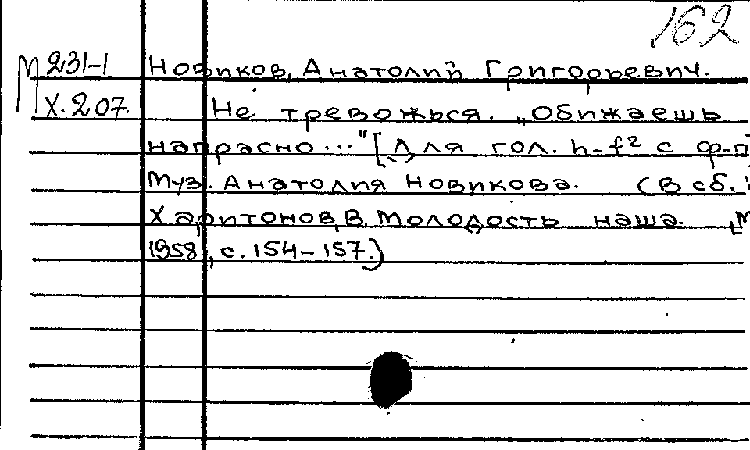 162
М 231-1 Новиков, Анатолий Григорьевич.
Х.207. Не тревожься. „Обижаешь
напрасно..." [Для гол. h-f² с ф-п
Муз. Анатолия Новикова. (В сб.:
Харитонов, В. Молодость наша. [М
1958, с. 154-157.)